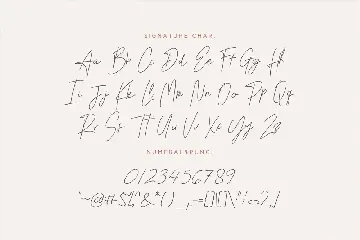 SIGNATURE CHAR.
Aa Bb Cc Dd Ee Ff Gg Hh
Ii Jj Kk Ll Mm Nn Oo Pp Qq
Rr Ss Tt Uu Vv Xx Yy Zz
NUMERALS&PUNC.
0123456789